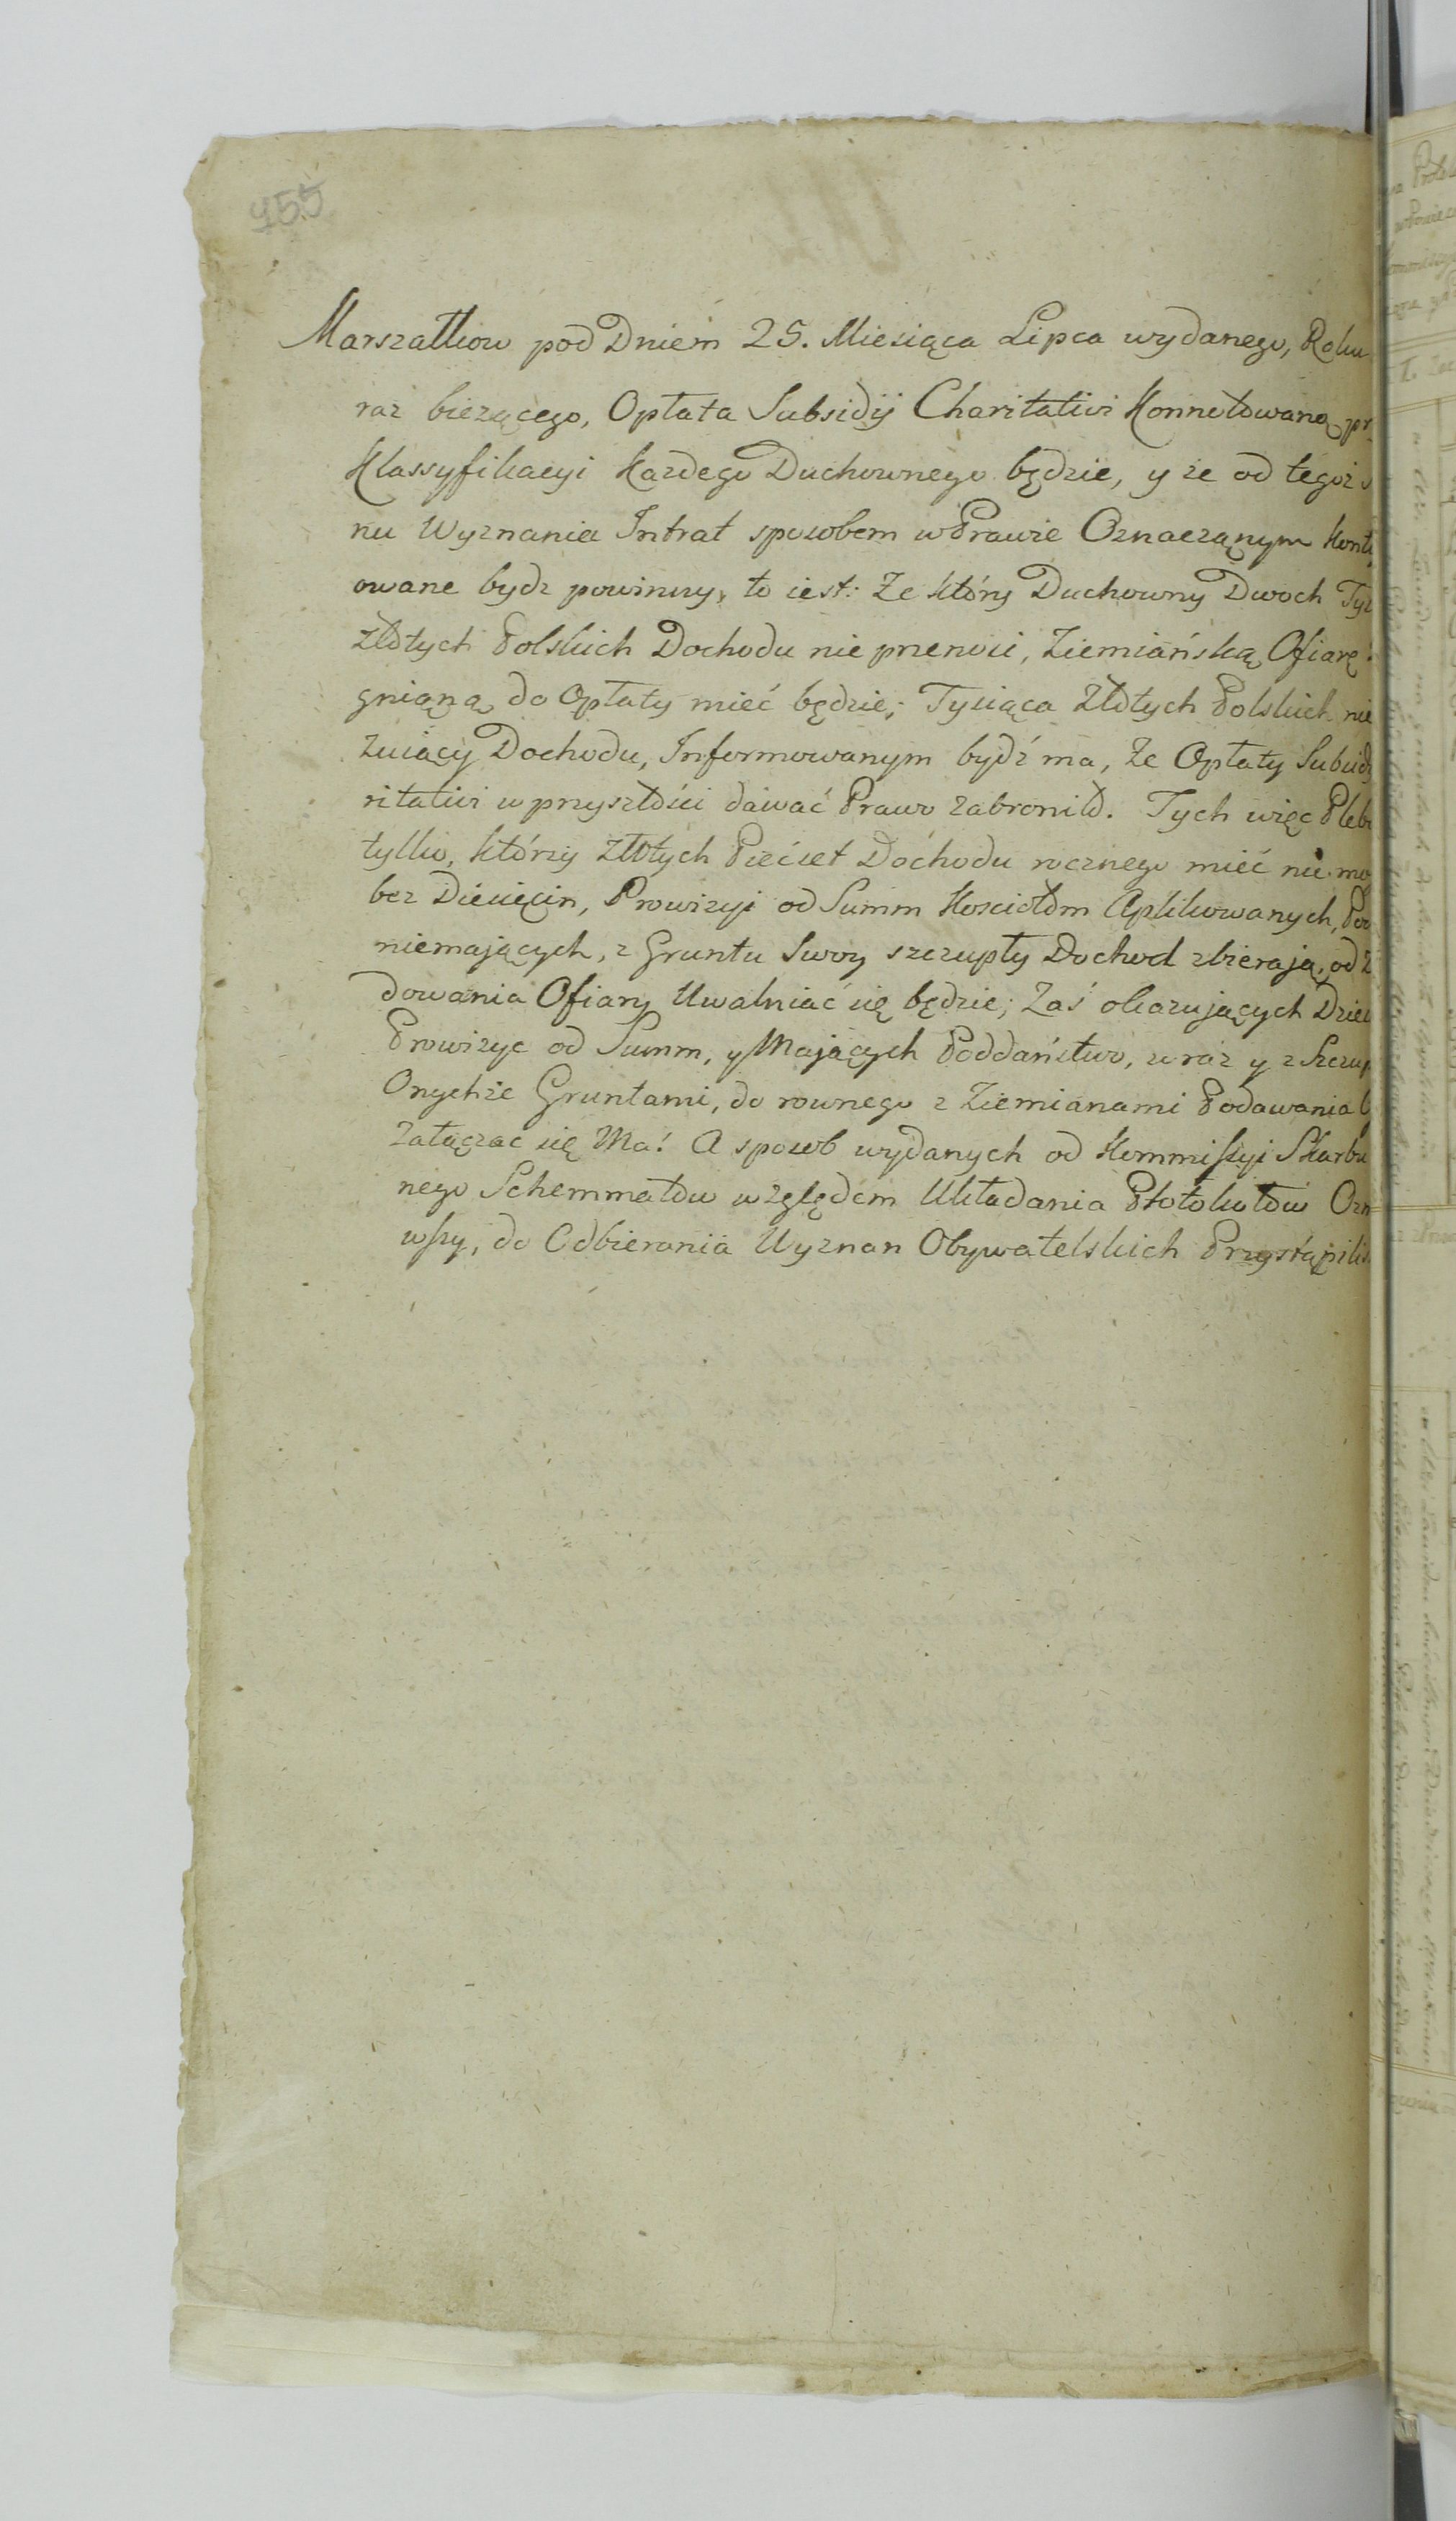 455
Marszałkow pod Dniem 25. Miesiąca Lipca wydanego, Roku
raz biezącego, Opłata Subsidij Charitativi Konnotowaną
Klassyfikacyi Kazdego Duchownego będzie, y ze od tegoż
nu Wyznania Intrat sposobem w Prawie Oznaczanym
owane bydz powinny, to iest: Ze który Duchowny Dwoch Tys
złotych Polskich Dochodu nie przenosi, Ziemiańską Ofiarę
gnioną do Opłaty mieć będzie; Tysiąca złotych Polskich nie
zuiący Dochodu, Informowanym bydź ma, że Opłaty Subsid
ritativi w przyszłości dawać Prawo zabroniło. Tych więc Pleb
tylko, którzy złotych Piećset Dochodu rocznego mieć nie mo
bez Diesięcin, Prowizyi od Summ Kosciołom Aplikowanych,
niemających, z Gruntu Swoy szczupły Dochod zbierają, od
dowania Ofiary Uwalniać się będzie; Zaś okazujących Dzies
Prowizye od Summ, y Mających Poddaństwo, wraz y z Szczup
Onychże Gruntami, do rownego z Ziemianami Podawania
Załączac się Ma! A sposob wydanych od Kommissyi Skarbu
nego Schemmatow względem Układania Protokołow Ozn
wszy, do Odbierania Wyznan Obywatelskich Przystąpilis